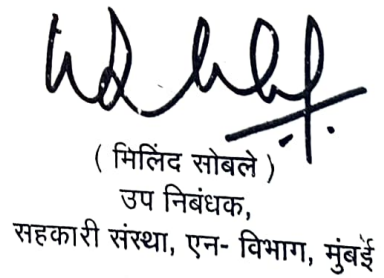 ( मिलिंद सोबले )
उप निबंधक,
सहकारी संस्था, एन- विभाग, मुंबई